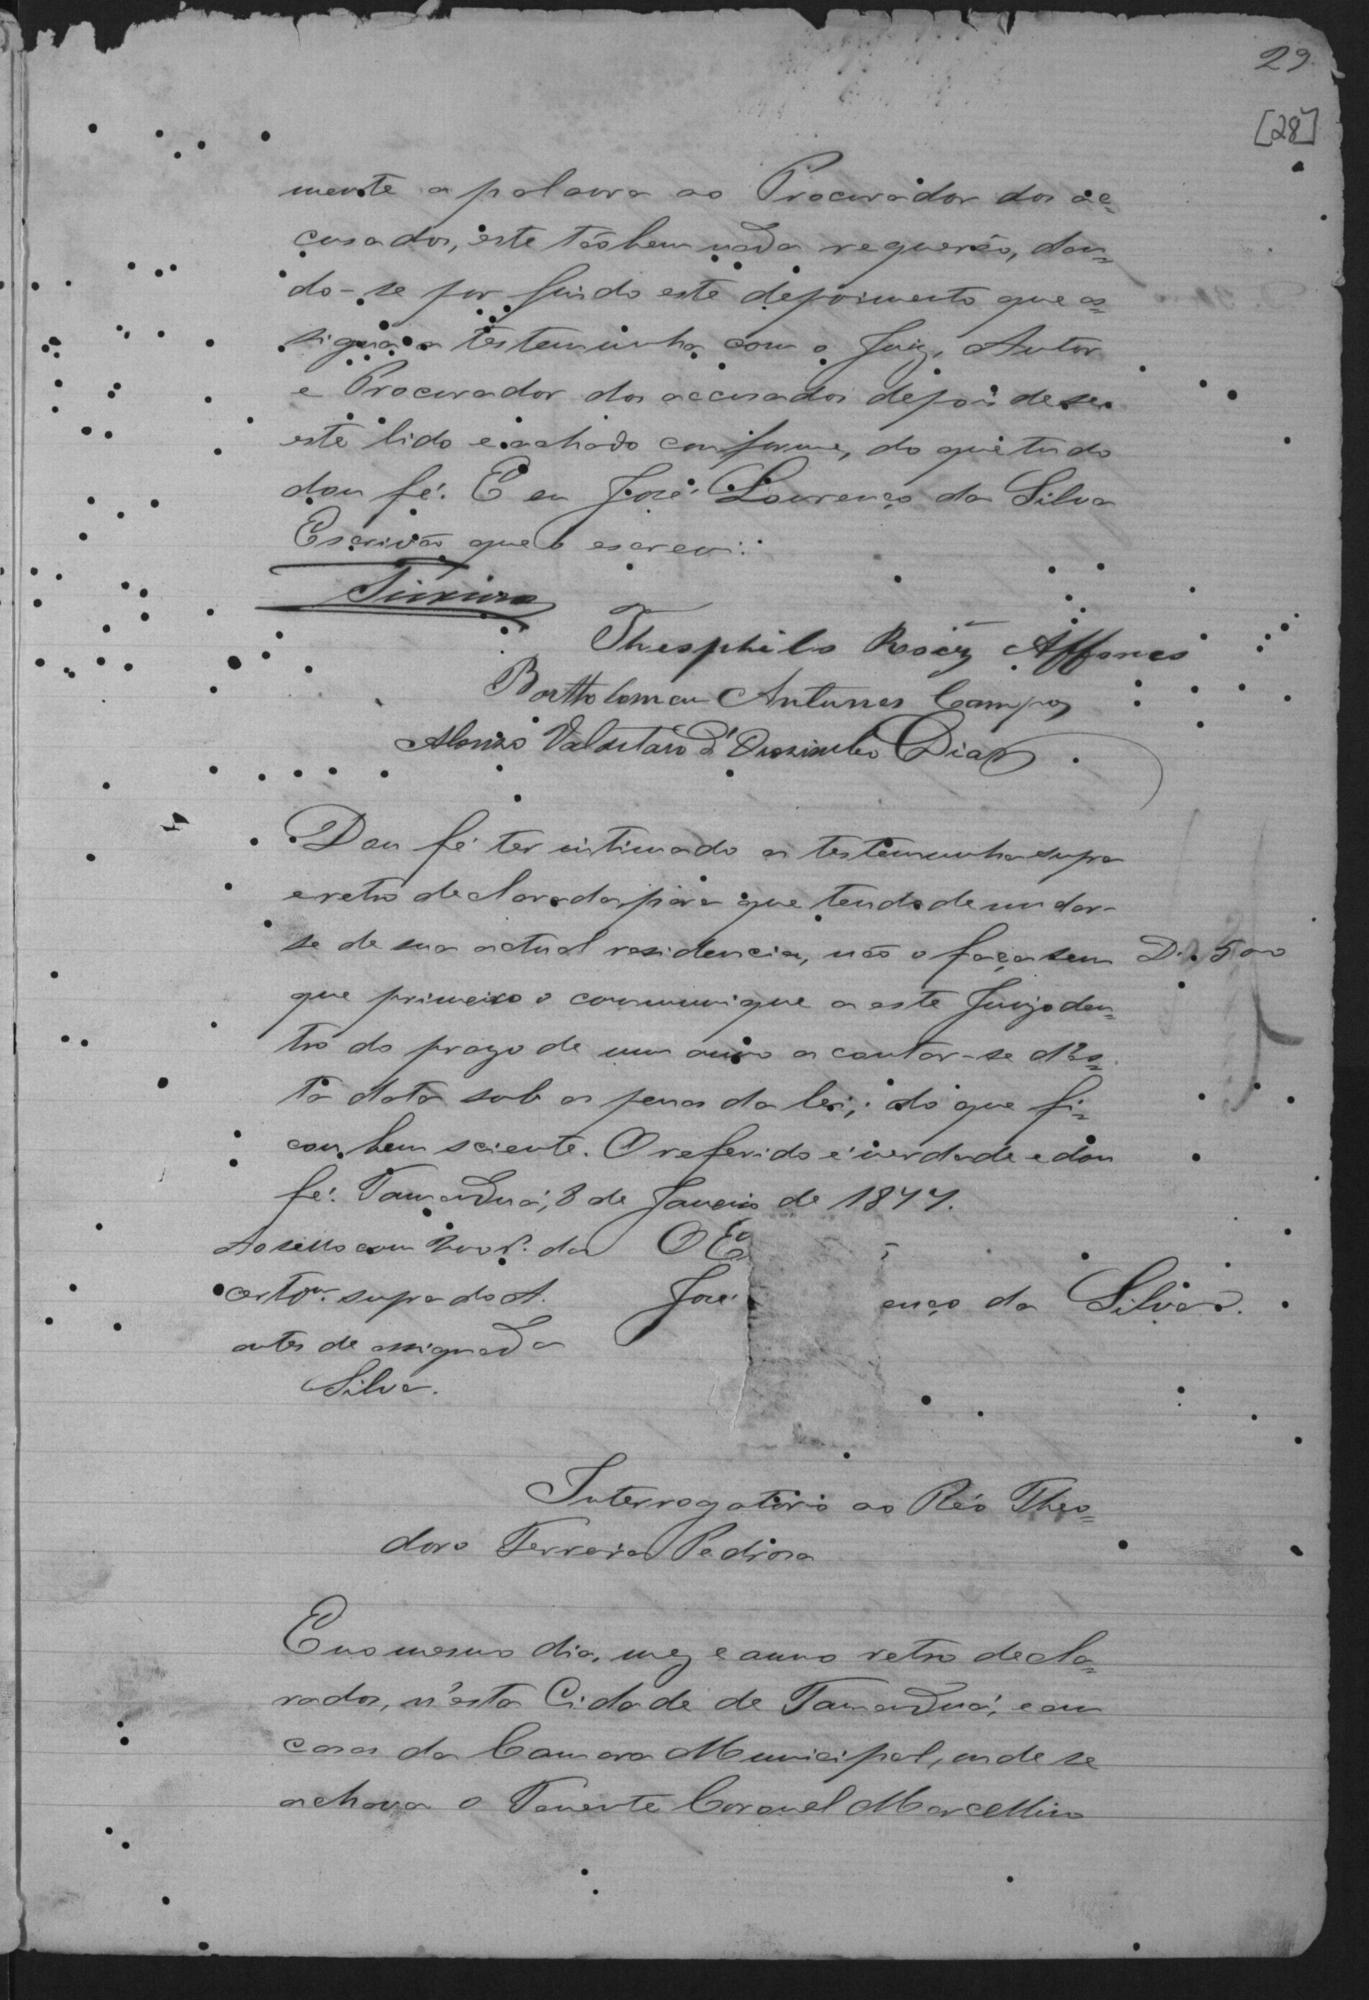 29
[28]
mente a palavra ao Procurador dos ac=
cusados, este tãobem nada requerêo, dan=
do-se por findo este depoimento que as=
signa a testemunha com o Juiz, Autor
e Procurador dos accusados depois de ser
este lido e achado conforme, do que tudo
dou fé. E eu José Lourenço da Silva
Escrivão que o escrevi.
Teixeira
Theophilo Roiz Affonso
Bartholomeu Antunes Campos
Alonso Dias
Dou fé ter intimado a testemunha supra
e retro declarada para que tendo de mudar-
se de sua actual residencia, não o faça sem
D. 500
que primeiro o communique a este Juizo den=
tro do prazo de um anno a contar-se d'es=
ta data sob as penas da lei; do que fi=
cou bem sciente. O referido é verdade e dou
fé. Tamanduá, 8 de Janeiro de 1877.
O E
José enço da Silva.
Ao sello com 200 r. da
certam. supra do A.
antes de assignada
Silva.
Interrogatorio ao Réo Theo=
doro Ferreira Pedrosa
E no mesmo dia, mez e anno retro decla=
rados, n'esta Cidade de Tamanduá, e em
casas da Camara Municipal, onde se
achava o Tenente Coronel Marcellino